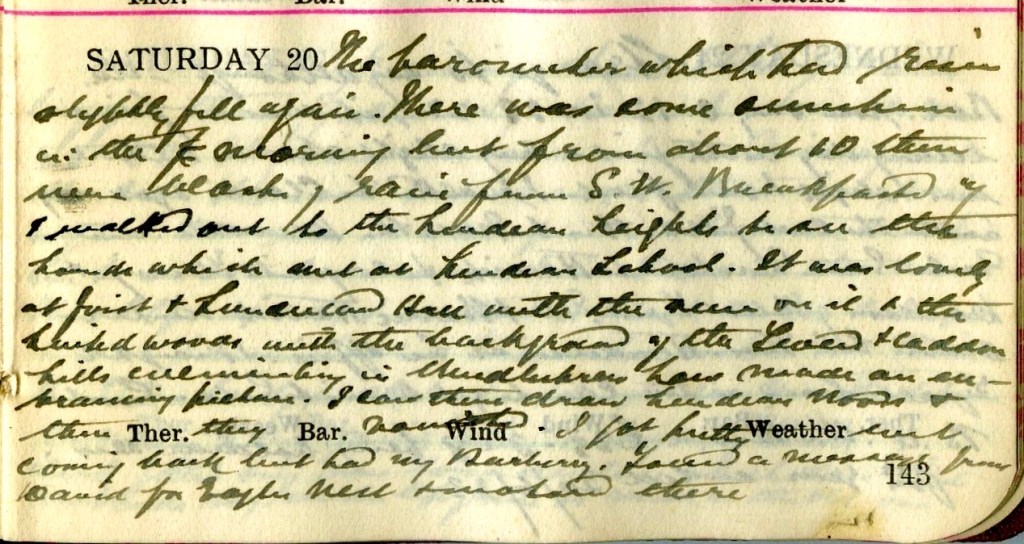 Ther. Bar. Wind Weather
SATURDAY 20 The barometer which had risen
slightly fell again. There was some sunshine
in the morning but from about 10 there
were blashes of rain from S.W. Breakfasted &
I walked out to the Lindean heights to see the
hounds which met at Lindean School. It was lovely
at first & Sunderland Hall with the sun on it & the
tinted woods with the background of the &
hills culminating in have made an en-
trancing picture. I saw them draw Lindean Woods &
then Ther. they Bar. vanished Wind . I got pretty Weather wet
coming back but had my Burberry. Found a message from
David for Eagles Nest & motored there
143